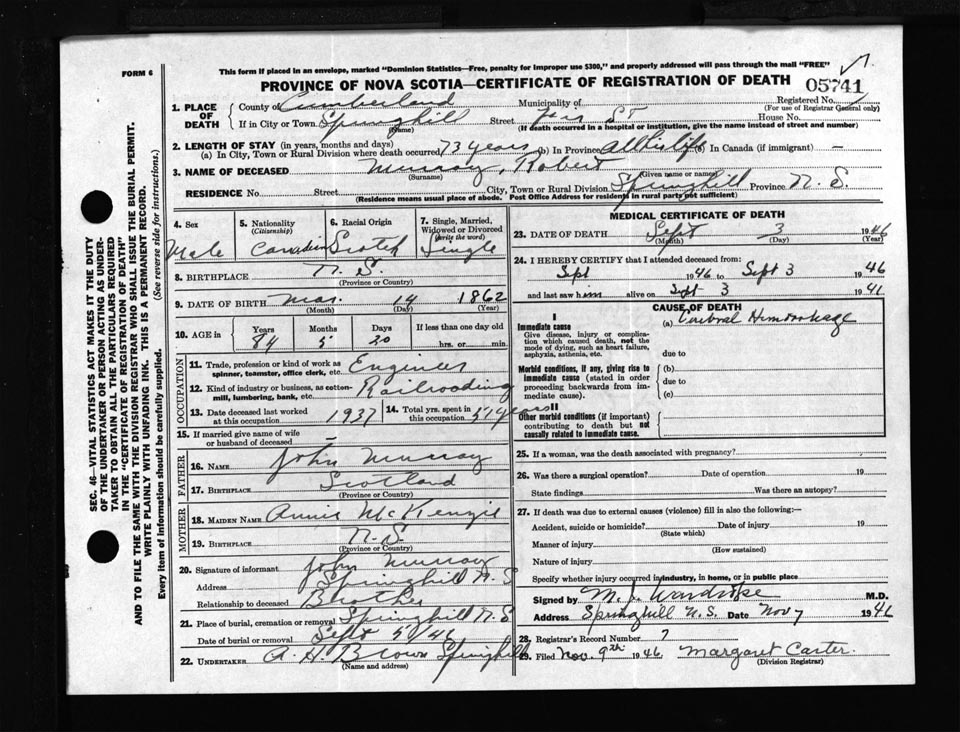 FORM 6
This form if placed in an envelope, marked "Dominion Statistics—Free, penalty for improper use $300," and properly addressed will pass through the mail "FREE"
PROVINCE OF NOVA SCOTIA—CERTIFICATE OF REGISTRATION OF DEATH
05741
Registered No.
(For use of Registrar General only)
1. PLACE OF DEATH County of Cumberland Municipality of
If in City or Town Springhill Street St House No.
(Name) (If death occurred in a hospital or institution, give the name instead of street and number)
2. LENGTH OF STAY (in years, months and days)
(a) In City, Town or Rural Division where death occurred 73 years (b) In Province All his life (c) In Canada (if immigrant) —
3. NAME OF DECEASED Murray, Robert
(Surname) (Given name or names)
RESIDENCE No. Street City, Town or Rural Division Springhill Province N.S.
(Residence means usual place of abode. Post Office Address for residents in rural parts not sufficient)
4. Sex Male
5. Nationality (Citizenship) Canadian
6. Racial Origin Scotch
7. Single, Married, Widowed or Divorced (write the word) Single
8. BIRTHPLACE N.S.
(Province or Country)
9. DATE OF BIRTH Mar. 14 1862
(Month) (Day) (Year)
10. AGE in Years Months Days If less than one day old
84 5 20 hrs. or min.
OCCUPATION
11. Trade, profession or kind of work as spinner, teamster, office clerk, etc. Engineer
12. Kind of industry or business, as cotton-mill, lumbering, bank, etc. Railroading
13. Date deceased last worked at this occupation 1937
14. Total yrs. spent in this occupation 57 years
15. If married give name of wife or husband of deceased —
FATHER
16. NAME John Murray
17. BIRTHPLACE Scotland
(Province or Country)
MOTHER
18. MAIDEN NAME Annie McKenzie
19. BIRTHPLACE N.S.
(Province or Country)
20. Signature of informant John Murray
Address Springhill N.S
Relationship to deceased Brother
21. Place of burial, cremation or removal Springhill N.S
Date of burial or removal Sept 5/46
22. UNDERTAKER A. H. Brown Springhill
(Name and address)
MEDICAL CERTIFICATE OF DEATH
23. DATE OF DEATH Sept 3 1946
(Month) (Day) (Year)
24. I HEREBY CERTIFY that I attended deceased from:
Sept 1946 to Sept 3 1946
and last saw him alive on Sept 3 1941
CAUSE OF DEATH
I
Immediate cause
Give disease, injury or complication which caused death, not the mode of dying, such as heart failure, asphyxia, asthenia, etc.
(a) Cerebral Hemorrhage
due to
Morbid conditions, if any, giving rise to immediate cause (stated in order proceeding backwards from immediate cause).
(b)
due to
(c)
II
Other morbid conditions (if important) contributing to death but not causally related to immediate cause.
25. If a woman, was the death associated with pregnancy?
26. Was there a surgical operation? Date of operation 19
State findings Was there an autopsy?
27. If death was due to external causes (violence) fill in also the following:—
Accident, suicide or homicide? Date of injury 19
(State which)
Manner of injury
(How sustained)
Nature of injury
Specify whether injury occurred in industry, in home, or in public place
Signed by M. J. Wardrope M.D.
Address Springhill N.S. Date Nov 7 1946
28. Registrar's Record Number 7
29. Filed Nov. 9th 1946 Margaret Carter
(Division Registrar)
SEC. 46—VITAL STATISTICS ACT MAKES IT THE DUTY
OF THE UNDERTAKER OR PERSON ACTING AS UNDER-
TAKER TO OBTAIN ALL THE PARTICULARS REQUIRED
IN THE "CERTIFICATE OF REGISTRATION OF DEATH"
AND TO FILE THE SAME WITH THE DIVISION REGISTRAR WHO SHALL ISSUE THE BURIAL PERMIT.
WRITE PLAINLY WITH UNFADING INK. THIS IS A PERMANENT RECORD.
Every item of information should be carefully supplied. (See reverse side for instructions.)